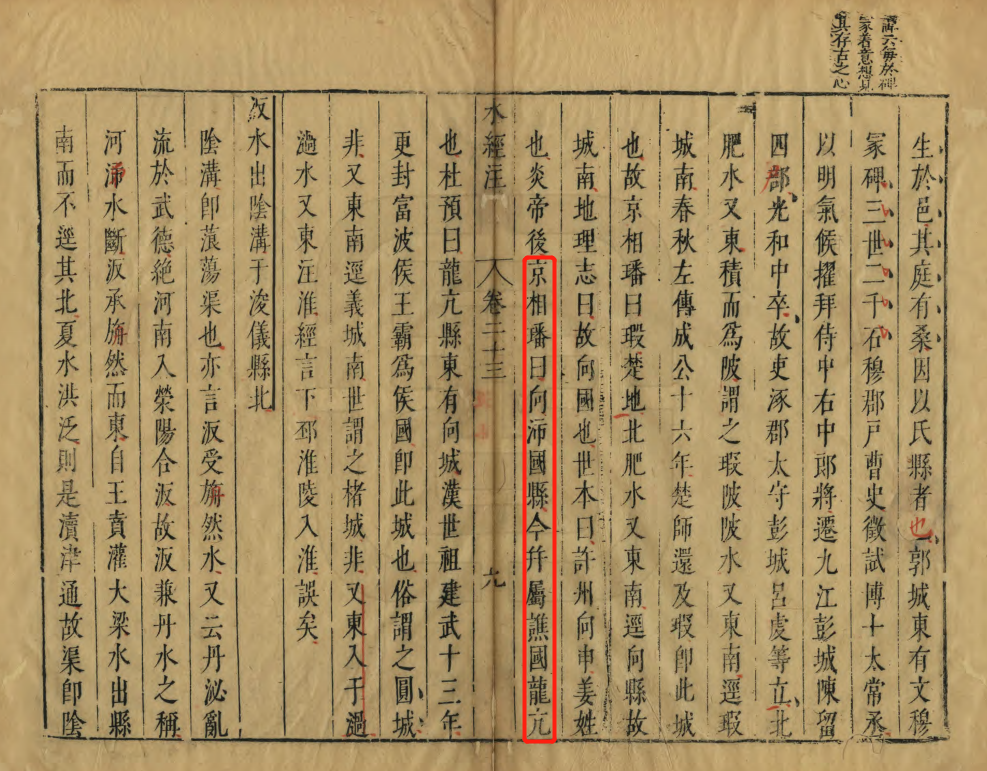 生於邑其庭有桑因以氏縣者也郭城東有文穆
冢碑三世二千石穆郡戶曹史徵試博士太常丞
以明氣候擢拜侍中右中郎將遷九江彭城陳留
四郡光和中卒故吏涿郡太守彭城呂虔等立北
肥水又東積而爲陂謂之瑕陂陂水又東南逕瑕
城南春秋左傳成公十六年楚師還及瑕卽此城
也故京相璠曰瑕楚地北肥水又東南逕向縣故
城南地理志曰故向國也世本曰許州向申姜姓
也炎帝後京相璠曰向沛國縣今幷屬譙國龍亢
水經注 卷二十三 九
也杜預曰龍亢縣東有向城漢世祖建武十三年
更封富波侯王霸爲侯國卽此城也俗謂之圓城
非又東南逕義城南世謂之楮城非又東入于濄
濄水又東注淮經言下邳淮陵入淮誤矣
汳水出陰溝于浚儀縣北
陰溝卽蒗蕩渠也亦言汳受旃然水又云丹泌亂
流於武德絕河南入滎陽合汳故汳兼丹水之稱
河泲水斷汳承旃然而東自王賁灌大梁水出縣
南而不逕其北夏水洪泛則是瀆津通故渠卽陰
謂云每於碑
冢著意想見
其存古之心